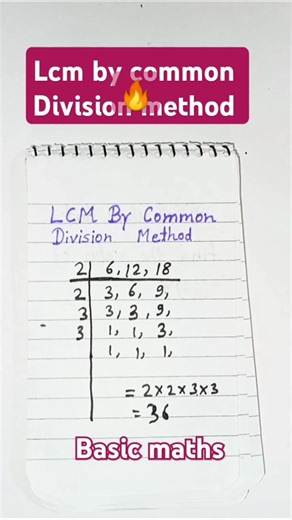 Lcm by common
Division🔥method
LCM By Common
Division Method
2 | 6, 12, 18
2 | 3, 6, 9,
3 | 3, 3, 9,
3 | 1, 1, 3,
1, 1, 1,
= 2 × 2 × 3 × 3
= 36
Basic maths